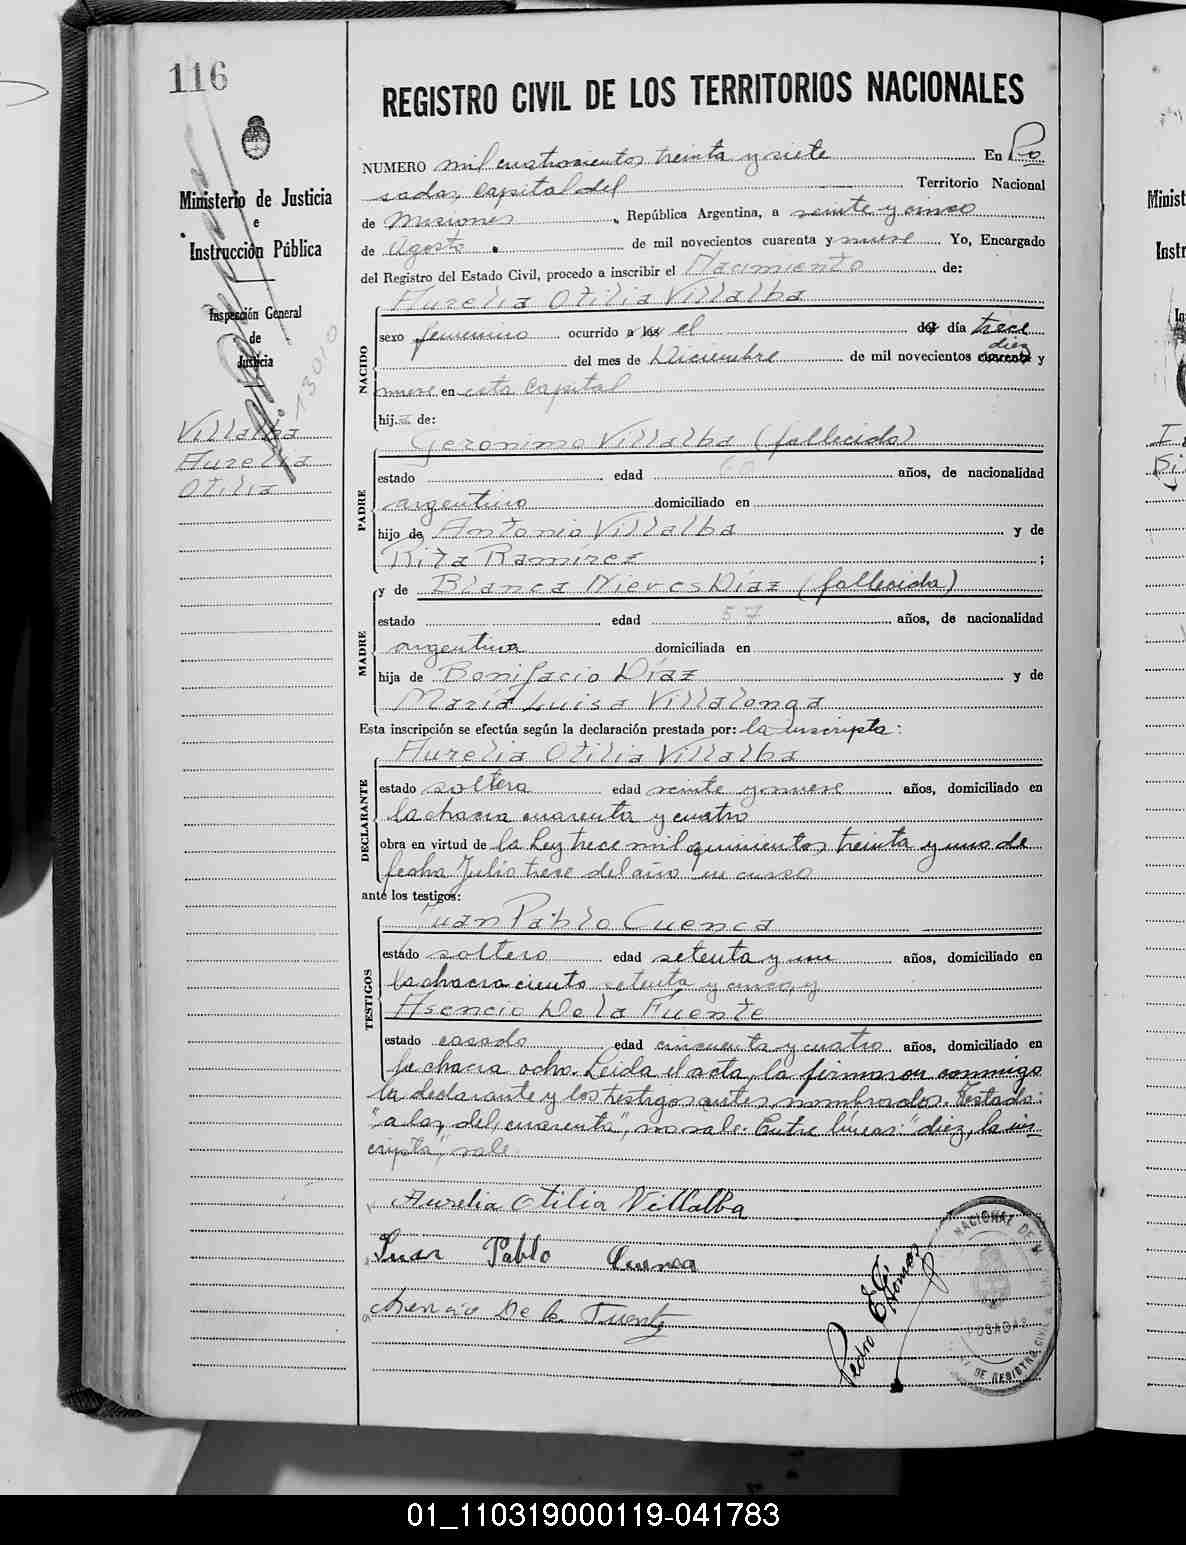 116
Ministerio de Justicia
e
Instrucción Pública
Inspección General
de
Justicia
13010
Villalba
Aurelia
Otilia
REGISTRO CIVIL DE LOS TERRITORIOS NACIONALES
NUMERO mil cuatrocientos treinta y siete En Po
sadas, capital del Territorio Nacional
de Misiones, República Argentina, a veinte y cinco
de Agosto de mil novecientos cuarenta y nueve Yo, Encargado
del Registro del Estado Civil, procedo a inscribir el Nacimiento de:
NACIDO
Aurelia Otilia Villalba
sexo femenino ocurrido a las el del día trece
diez
del mes de Diciembre de mil novecientos cuarenta y
nueve en esta Capital
hija de:
PADRE
Geronimo Villalba (fallecido)
estado edad 60 años, de nacionalidad
argentino domiciliado en
hijo de Antonio Villalba y de
Rita Ramírez ;
MADRE
y de Blanca Nieves Díaz (fallecida)
estado edad 57 años, de nacionalidad
argentina domiciliada en
hija de Bonifacio Díaz y de
María Luisa Villalonga
Esta inscripción se efectúa según la declaración prestada por: la inscripta:
DECLARANTE
Aurelia Otilia Villalba
estado soltera edad veinte y nueve años, domiciliado en
la chacra cuarenta y cuatro
obra en virtud de la Ley trece mil quinientos treinta y uno de
fecha Julio trece del año en curso
ante los testigos:
TESTIGOS
Juan Pablo Cuenca
estado soltero edad setenta y un años, domiciliado en
la chacra ciento setenta y cinco, y
Asencio De la Fuente
estado casado edad cincuenta y cuatro años, domiciliado en
la chacra ocho. Leida el acta, la firmaron conmigo
la declarante y los testigos antes nombrados. Testado:
"a las, del, cuarenta", no vale. Entre líneas: "diez, la ins
cripta", vale.
Aurelia Otilia Villalba
Juan Pablo Cuenca
Asencio De la Fuente
Pedro E. Gómez
NACIONAL DE M
POSADAS
DE REGISTRO CIVIL
01_110319000119-041783